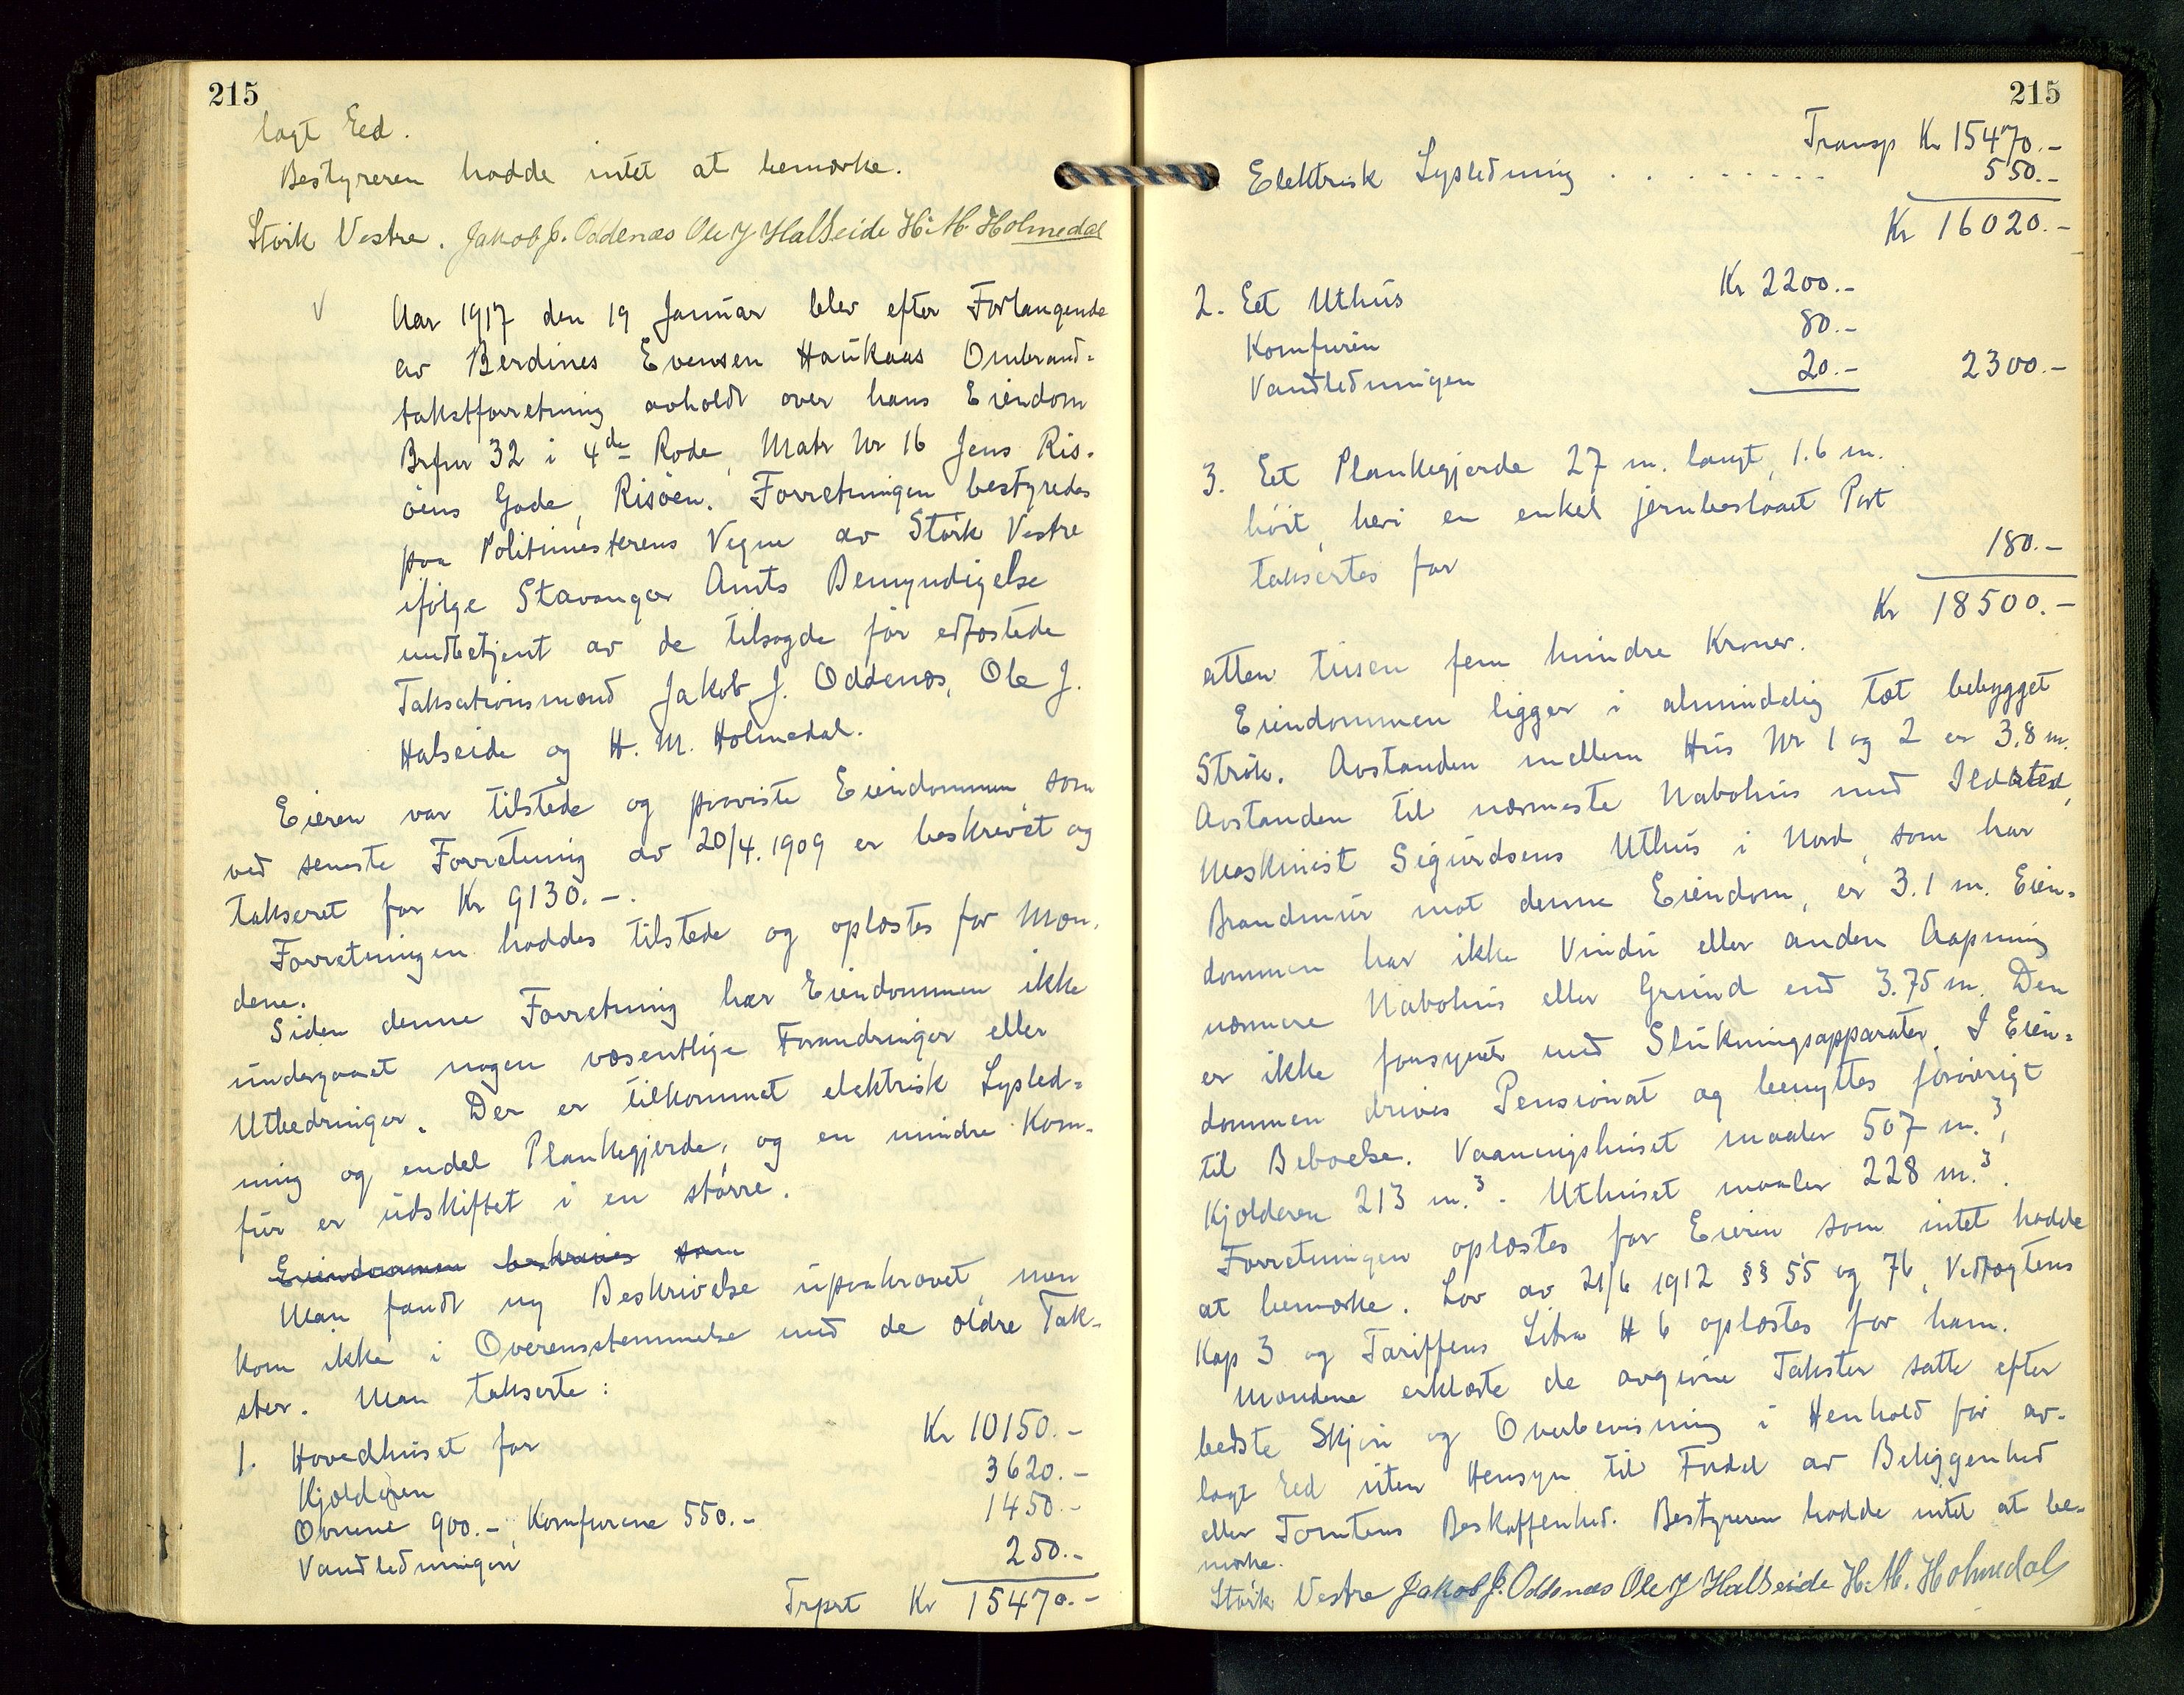 215
lagt Eed.
Bestyreren hadde intet at bemærke.
Størk Vestre. Jakob J. Oddenæs Ole J Halseide H. M. Holmedal
√ Aar 1917 den 19 Januar blev efter Forlangende
av Berdines Evensen Haukaas Ombrand-
takstforretning avholdt over hans Eiendom
Brfnr 32 i 4de Rode, Matr Nr 16 Jens Ris-
øens Gade, Risøen. Forretningen bestyredes
paa Politimesterens Vegne av Størk Vestre
ifølge Stavanger Amts Bemyndigelse
medbetjent av de tilsagde før edfæstede
Taksationsmænd Jakob J. Oddenæs, Ole J.
Halseide og H. M. Holmedal.
Eieren var tilstede og paaviste Eiendommen, som
ved seneste Forretning av 20/4. 1909 er beskrevet og
takseret for Kr 9130.-.
Forretningen haddes tilstede og oplæstes for Mæn-
dene.
Siden denne Forretning har Eiendommen ikke
undergaaet nogen væsentlige Forandringer eller
Utbedringer. Der er tilkommet elektrisk Lysled-
ning og endel Plankegjerde, og en mindre Kom-
fur er udskiftet i en større.
Eiendommen beskrives som
Man fandt ny Beskrivelse upaakrævet, men
kom ikke i Overensstemmelse med de ældre Tak-
ster. Man takserte:
1. Hovedhuset for Kr 10150.-
Kjælderen 3620.-
Ovnene 900.-, Komfurene 550.- 1450.-
Vandledningen 250.-
Trprt Kr 15470.-
215
Transp Kr 15470.-
Elektrisk Lysledning . . . . . . . . 550.-
Kr 16020.-
2. Eet Uthus Kr 2200.-
Komfuren 80.-
Vandledningen 20.- 2300.-
3. Eet Plankegjerde 27 m. langt, 1.6 m.
høit, heri en enkel jernbeslaaet Port
taksertes for 180.-
Kr 18500.-
atten tusen fem hundre Kroner.
Eiendommen ligger i almindelig tæt bebygget
Strøk. Avstanden mellem Hus Nr 1 og 2 er 3.8 m.
Avstanden til nærmeste Nabohus med Ildsted,
Maskinist Sigurdsens Uthus i Nord, som har
Brandmur mot denne Eiendom, er 3.1 m. Eien-
dommen har ikke Vindu eller anden Aapning
nærmere Nabohus eller Grund end 3.75 m. Den
er ikke forsynet med Slukningsapparater. I Eien-
dommen drives Pensionat og benyttes forøvrigt
til Beboelse. Vaaningshuset maaler 507 m.³,
Kjælderen 213 m.³. Uthuset maaler 228 m.³.
Forretningen oplæstes for Eieren som intet hadde
at bemærke. Lov av 21/6 1912 §§ 55 og 76, Vedtægtens
Kap 3 og Tariffens Litra H 6 oplæstes for ham.
Mændene erklærte de avgivne Takster satte efter
bedste Skjøn og Overbevisning i Henhold før av-
lagt Eed uten Hensyn til Fordel av Beliggenhed
eller Tomtens Beskaffenhed. Bestyreren hadde intet at be-
mærke.
Størk Vestre Jakob J. Oddenæs Ole J Halseide H. M. Holmedal